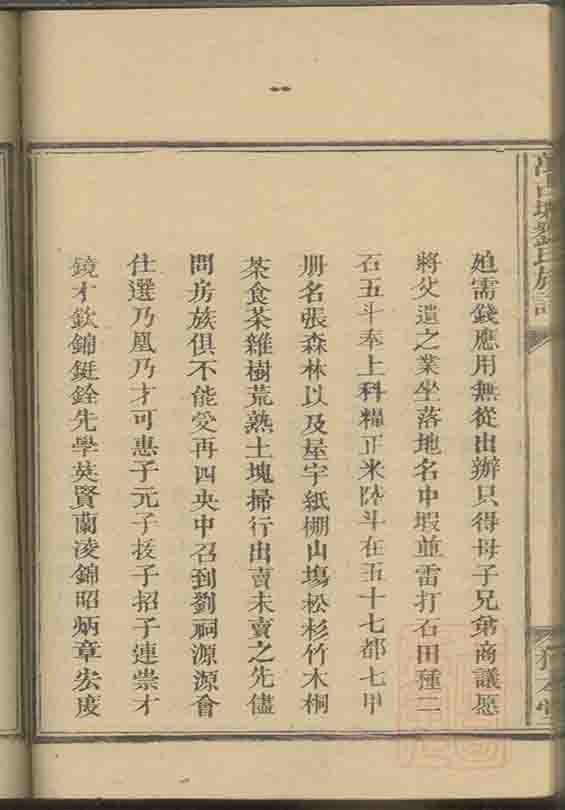 劉氏族譜
廹需錢應用無從出辦只得母子兄弟商議愿
將父遺之業坐落地名中塅並雷打石田種二
石五斗奉上科糧正米陸斗在五十七都七甲
册名張森林以及屋宇紙棚山塲松杉竹木桐
茶食茶雜樹荒熟土塊掃行出賣未賣之先儘
問房族俱不能受再四央中召到劉祠源源會
仕選乃凰乃才可惠子元子拔子招子連崇才
鏡才欽錦鋌銓先學英賢蘭凌錦昭炳章宏度